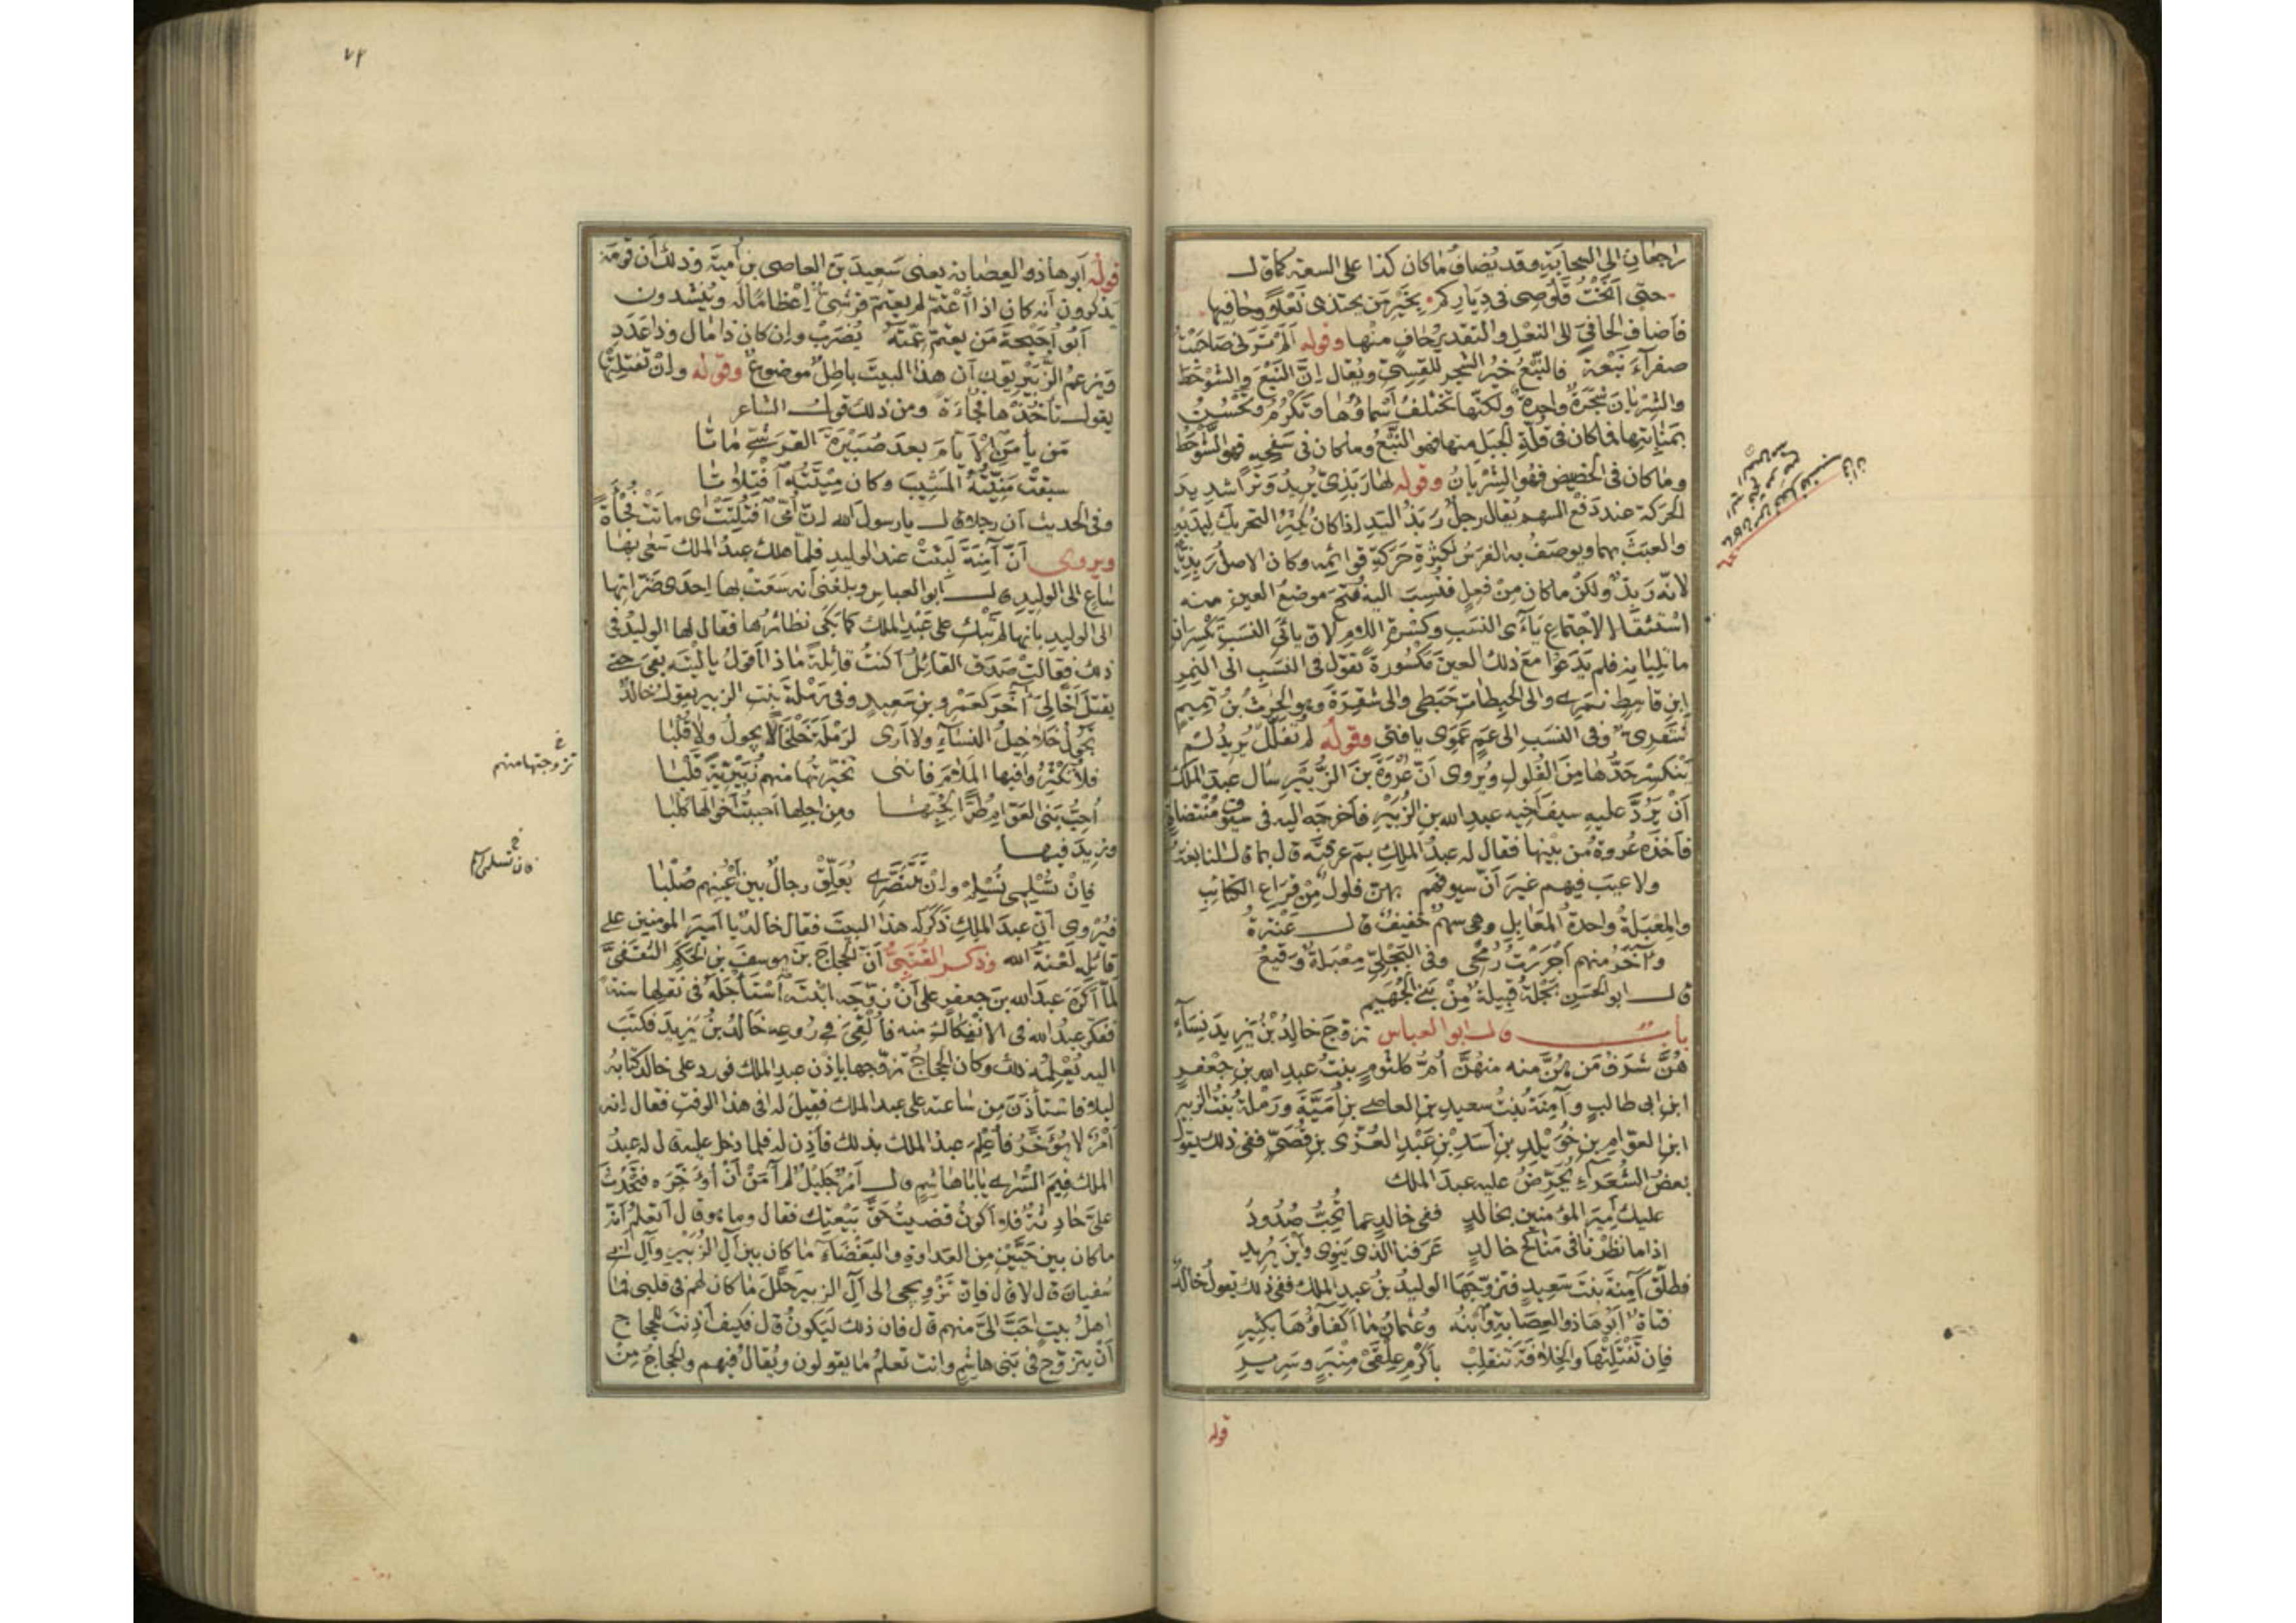 راجعان الى السحابة وقد يضاف ما كان كذا على السعة كما قال
حتى انخت قلوصى فى دياركم بخير من يحتذى نعلا وحافيها
فأضاف الحافى الى النعل والتقدير حاف منها وقوله ألم تر لى صاحبت
صفرآء نبعة فالنبع خير الشجر للقسى ويقال ان النبع والشوحط
والشريان شجرة واحدة ولكنها تختلف أسماؤها وتكرم وتحسن
بمنابتها فما كان فى قلة الجبل منها فهو النبع وما كان فى سفحه فهو الشوحط
وما كان فى الحضيض فهو الشريان وقوله لها ربذى يريد وترا شديد
الحركة عند دفع السهم يقال رجل ربذ اليد اذا كان كثير التحريك ليديه
والعبث بهما ويوصف به الفرس لكثرة حركة قوائمه وكان الاصل ربذى
لانه ربذ ولكن ما كان من فعل فنسب اليه فتح موضع العين منه
استثقالا لاجتماع يآءى النسب وكسرة اللام لان يآئى النسب تكسران
ما تليانه فلم يدعوا مع ذلك العين مكسورة تقول فى النسب الى النمر
ابن قاسط نمرى والى الحبطات حبطى والى شقرة وهو الحرث بن تميم
شقرى وفى النسب الى عم عموى يا فتى وقوله لم تفلل يريد لم
ينكسر حدها من الفلول ويروى ان عروة بن الزبير سأل عبد الملك
أن يرد عليه سيف اخيه عبد الله بن الزبير فأخرجه اليه فى سيوف منتضاة
فأخذه عروة من بينها فقال له عبد الملك بم عرفته قال بما قال النابغة
ولا عيب فيهم غير أن سيوفهم بهن فلول من قراع الكتائب
والمعبلة واحدة المعابل وهى سهم خفيف قال عنترة
وآخر منهم أجررت رمحى وفى البجلى معبلة وقيع
قال ابو الحسن بجلة قبيلة من بنى الجهيم
باب قال ابو العباس تزوج خالد بن يزيد نسآء
هن شرف من هن منه منهن أم كلثوم بنت عبد الله بن جعفر
ابن ابى طالب وآمنة بنت سعيد بن العاصى بن أمية ورملة بنت الزبير
ابن العوام بن خويلد بن أسد بن عبد العزى بن قصى ففى ذلك يقول
بعض الشعرآء يحرض عليه عبد الملك
عليك أمير المؤمنين بخالد ففى خالد عما تحب صدود
اذا ما نظرنا فى مناكح خالد عرفنا الذى ينوى وأين يريد
فطلق آمنة بنت سعيد فتزوجها الوليد بن عبد الملك ففى ذلك يقول خالد
فتاة ابوها ذو العصابة وابنه وعثمان ما أكفاؤها بكثير
فإن تفتلتها والخلافة تنقلب بأكرم علقى منبر وسرير
قوله
قوله أبوها ذو العصابة يعنى سعيد بن العاصى بن أمية وذلك أن قومه
يذكرون أنه كان اذا أعتم لم يعتم قرشى إعظاما له وينشدون
أبو أحيحة من يعتم عمته يضرب وان كان ذا مال وذا عدد
ويزعم الزبيريون أن هذا البيت باطل موضوع وقوله وان تفتلتها
يقول تأخذها فجاءة ومن ذلك قول الشاعر
من يأمن الايام بعد صبيرة القرشى ماتا
سبقت منيته المشيب وكان ميتته افتلاتا
وفى الحديث أن رجلا قال يا رسول الله ان أمى افتلتت اى ماتت فجأة
ويروى أن آمنة لبثت عند الوليد فلما هلك عبد الملك سعى بها
ساع الى الوليد قال ابو العباس وبلغنى أنه سعت بها احدى ضراتها
الى الوليد بأنها لم تبك على عبد الملك كما بكى نظائرها فقال لها الوليد فى
ذلك فقالت صدق القائل أكنت قائلة ماذا أقول يا ليته بقى حتى
يقتل أخا لى آخر كعمرو بن سعيد وفى رملة بنت الزبير يقول خالد
تجول خلاخيل النسآء ولا أرى لرملة خلخالا يجول ولا قلبا
فلا تكثروا فيها الملام فاننى تخيرتها منهم زبيرية قلبا
أحب بنى العوام طرا لحبها ومن اجلها احببت أخوالها كلبا
وزيد فيها
فإن تسلمى نسلم وان تتنصرى يعلق رجال بين أعينهم صلبا
فيروى أن عبد الملك ذكر له هذا البيت فقال خالد يا أمير المؤمنين على
قائله لعنة الله وذكر القتبى أن الحجاج بن يوسف بن الحكم الثقفى
لما أكره عبد الله بن جعفر على أن زوجه ابنته استأجله فى نقلها سنة
ففكر عبد الله فى الانفكاك منه فألقى فى روعه خالد بن يزيد فكتب
اليه يعلمه ذلك وكان الحجاج تزوجها باذن عبد الملك فورد على خالد كتابه
ليلا فاستأذن من ساعته على عبد الملك فقيل له افى هذا الوقت فقال انه
أمر لا يؤخر فأعلم عبد الملك بذلك فأذن له فلما دخل عليه قال له عبد
الملك فيم السرى يا ابا هاشم قال أمر جليل لم آمن أن أؤخره فتحدث
على حادثة فلا أكون قضيت حق بيعتك فقال وما هو قال أتعلم أنه
ما كان بين حيين من العداوة والبغضآء ما كان بين آل الزبير وآل ابى
سفيان قال لا قال فإن تزويجى الى آل الزبير حلل ما كان لهم فى قلبى فما
اهل بيت احب الى منهم قال فان ذلك ليكون قال فكيف أذنت للحجاج
أن يتزوج فى بنى هاشم وانت تعلم ما يقولون ويقال فيهم والحجاج من
تزوجتها منهم